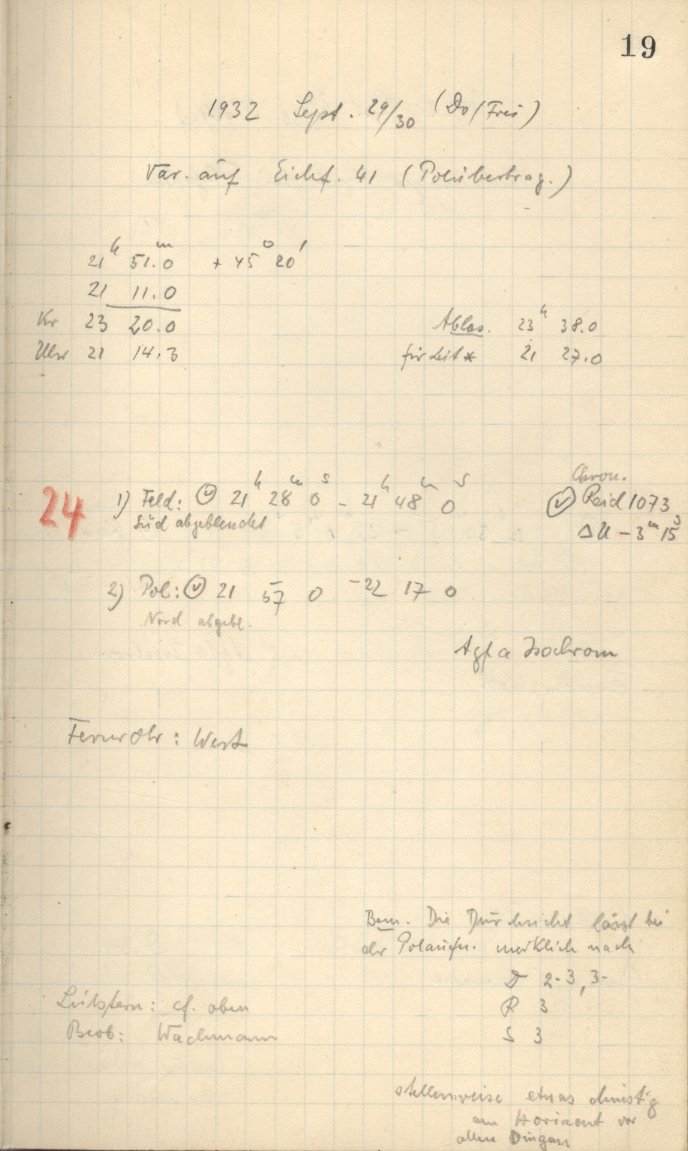 19
1932 Sept. 29/30 (Do/Frei)
Var. auf Eichf. 41 (Polübertrag.)
21h 51m.0 + 45° 20'
21 11.0
Kr 23 20.0
Uhr 21 14.3
Ables. 23h 38.0
für Leit* 21 27.0
24
1) Feld: 21h 28m 0s - 21h 48m 0s
Süd abgeblendet
Chron.
Reid 1073
ΔU - 3m 15s
2) Pol: 21 57 0 - 22 17 0
Nord abgebl.
Agfa Isochrom
Fernrohr: West
Bem. Die Durchsicht lässt bei
der Polaufn. merklich nach
D 2-3, 3-
R 3
S 3
Leitstern: cf. oben
Beob: Wachmann
stellenweise etwas dunstig
am Horizont vor
allen Dingen